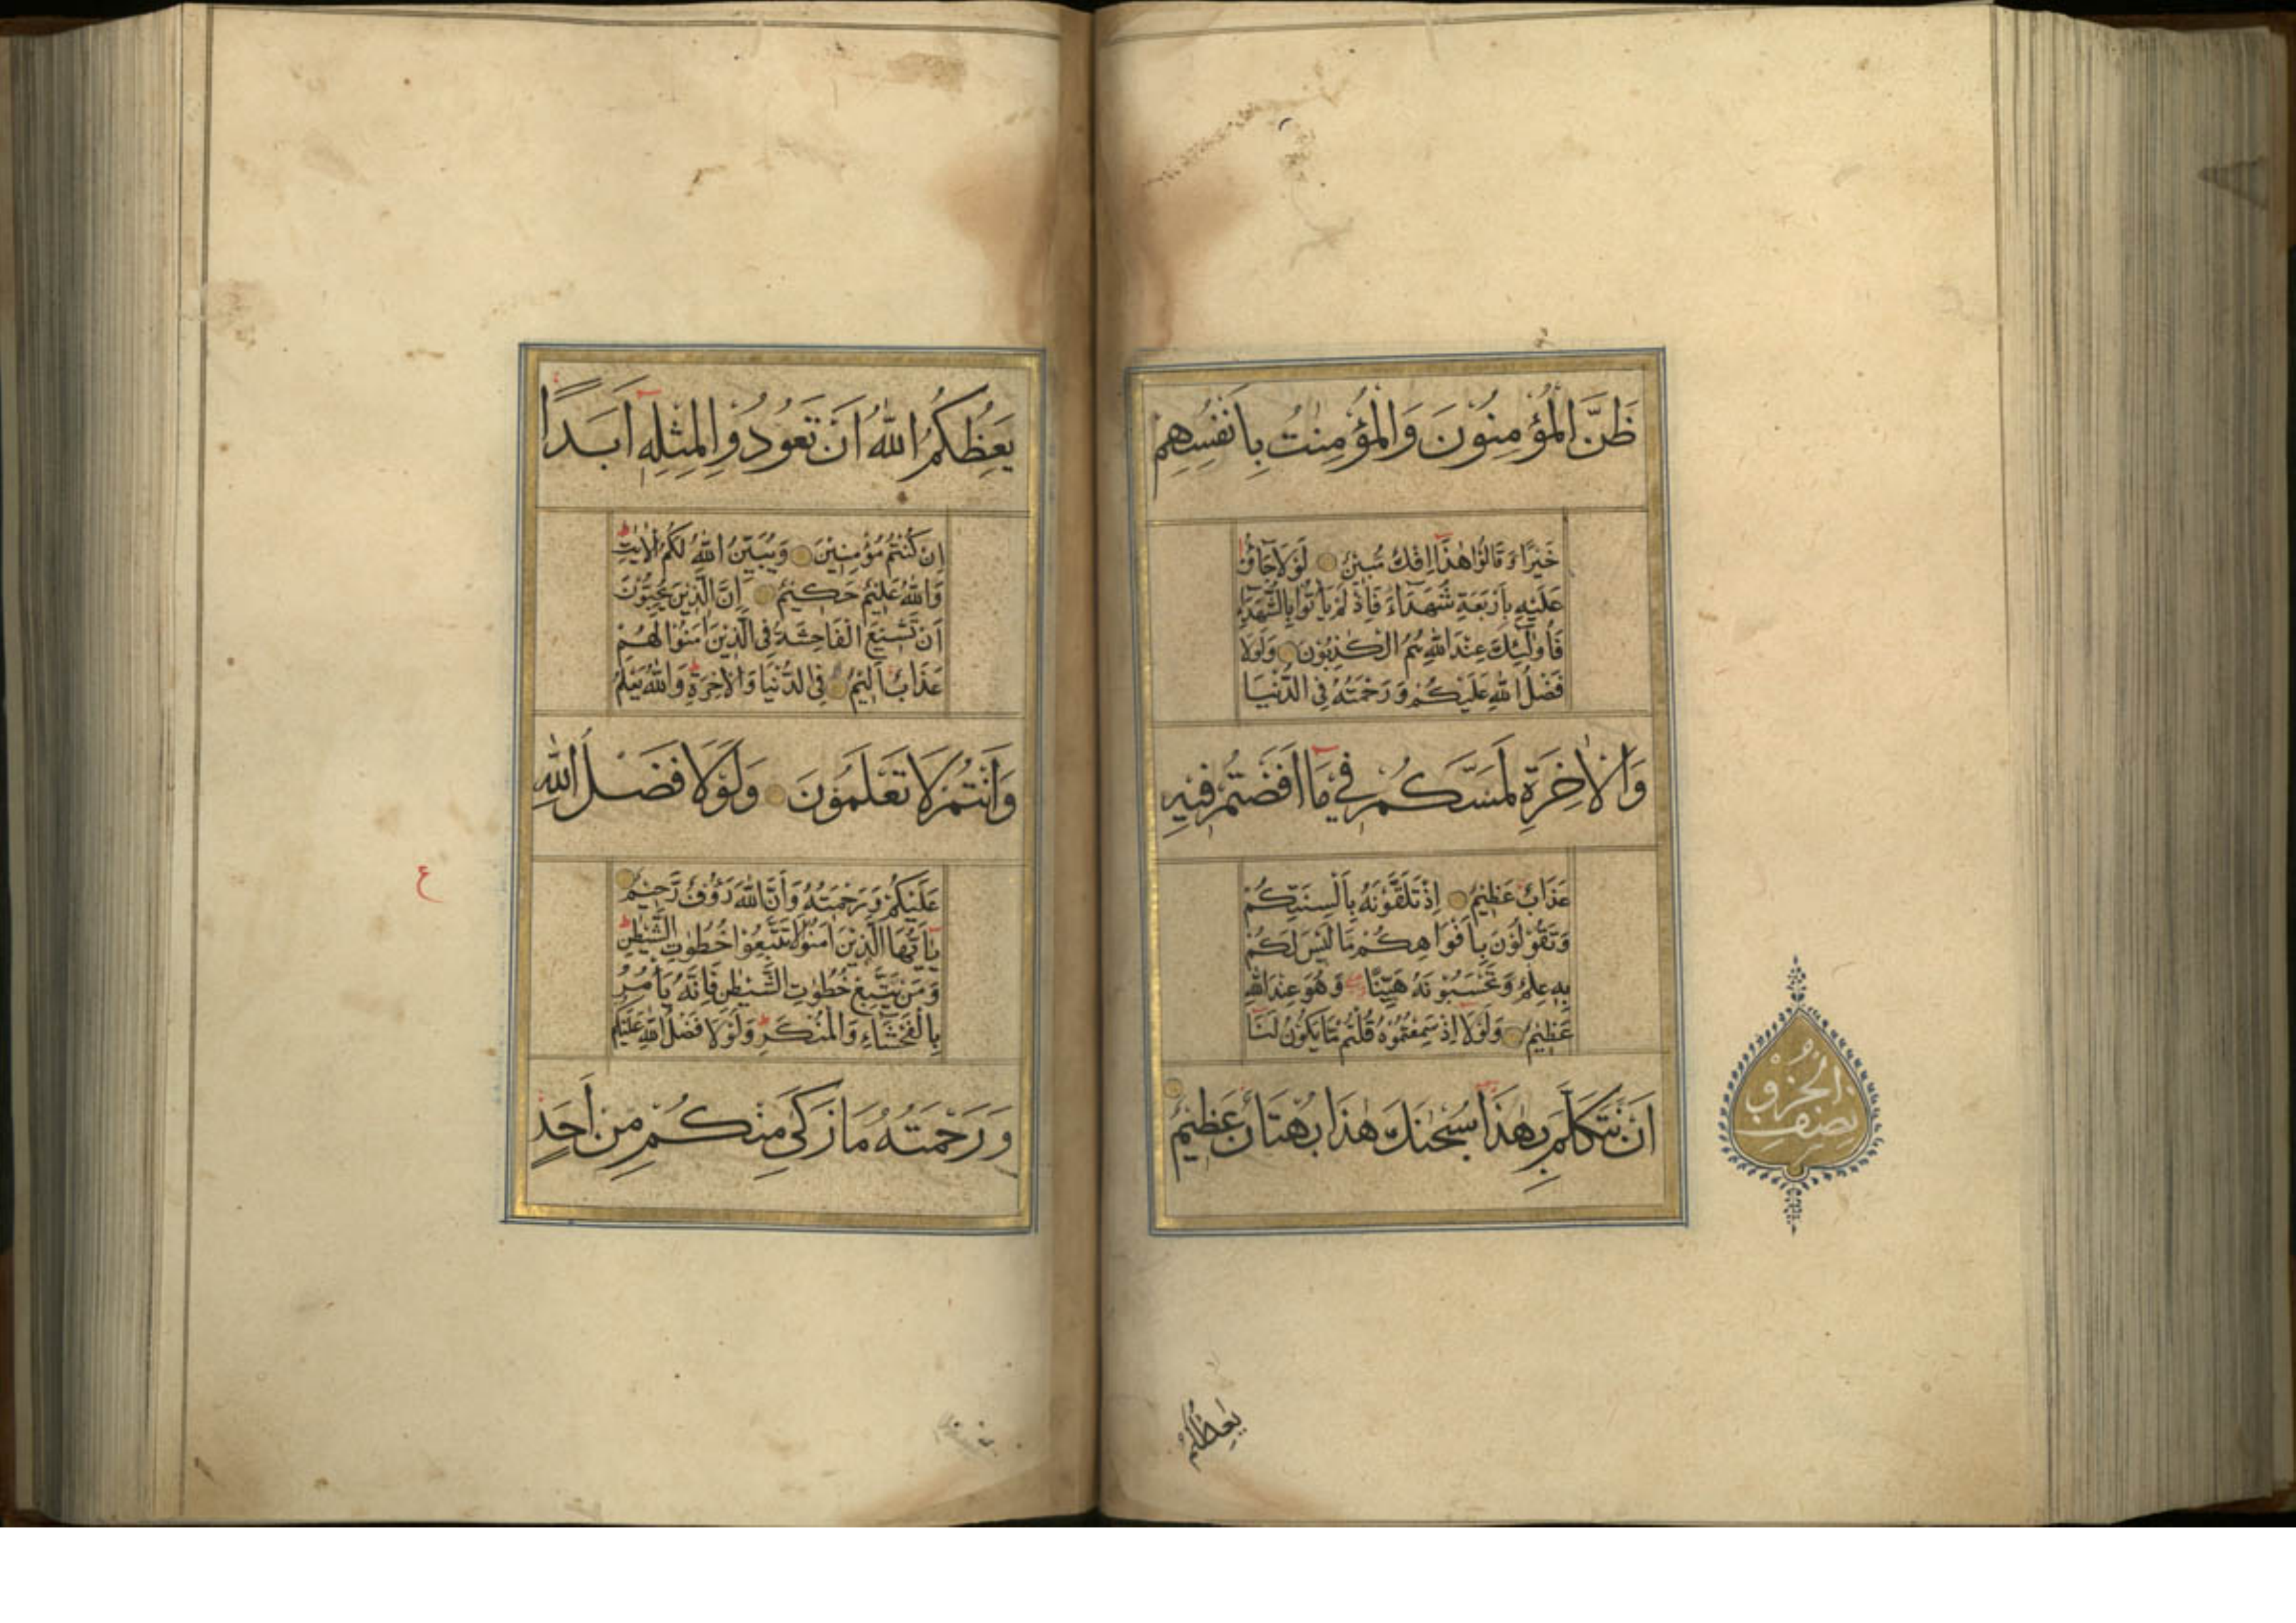 ظَنَّ الْمُؤْمِنُوْنَ وَالْمُؤْمِنٰتُ بِاَنْفُسِهِمْ
خَيْرًا وَّ قَالُوْا هٰذَا اِفْكٌ مُّبِيْنٌ لَوْلَا جَآءُوْ
عَلَيْهِ بِاَرْبَعَةِ شُهَدَآءَ فَاِذْ لَمْ يَاْتُوْا بِالشُّهَدَآءِ
فَاُولٰٓئِكَ عِنْدَ اللّٰهِ هُمُ الْكٰذِبُوْنَ وَلَوْلَا
فَضْلُ اللّٰهِ عَلَيْكُمْ وَرَحْمَتُهٗ فِى الدُّنْيَا
وَالْاٰخِرَةِ لَمَسَّكُمْ فِيْ مَآ اَفَضْتُمْ فِيْهِ
عَذَابٌ عَظِيْمٌ اِذْ تَلَقَّوْنَهٗ بِاَلْسِنَتِكُمْ
وَتَقُوْلُوْنَ بِاَفْوَاهِكُمْ مَّا لَيْسَ لَكُمْ
بِهٖ عِلْمٌ وَّتَحْسَبُوْنَهٗ هَيِّنًا وَّهُوَ عِنْدَ اللّٰهِ
عَظِيْمٌ وَلَوْلَا اِذْ سَمِعْتُمُوْهُ قُلْتُمْ مَّا يَكُوْنُ لَنَآ
اَنْ نَّتَكَلَّمَ بِهٰذَا سُبْحٰنَكَ هٰذَا بُهْتَانٌ عَظِيْمٌ
نصف
الحزب
يَعِظُكُمُ
يَعِظُكُمُ اللّٰهُ اَنْ تَعُوْدُوْا لِمِثْلِهٖٓ اَبَدًا
اِنْ كُنْتُمْ مُّؤْمِنِيْنَ وَيُبَيِّنُ اللّٰهُ لَكُمُ الْاٰيٰتِ ط
وَاللّٰهُ عَلِيْمٌ حَكِيْمٌ اِنَّ الَّذِيْنَ يُحِبُّوْنَ
اَنْ تَشِيْعَ الْفَاحِشَةُ فِى الَّذِيْنَ اٰمَنُوْا لَهُمْ
عَذَابٌ اَلِيْمٌ فِى الدُّنْيَا وَالْاٰخِرَةِ ط وَاللّٰهُ يَعْلَمُ
وَاَنْتُمْ لَا تَعْلَمُوْنَ وَلَوْلَا فَضْلُ اللّٰهِ
عَلَيْكُمْ وَرَحْمَتُهٗ وَاَنَّ اللّٰهَ رَءُوْفٌ رَّحِيْمٌ
ع
يٰٓاَيُّهَا الَّذِيْنَ اٰمَنُوْا لَا تَتَّبِعُوْا خُطُوٰتِ الشَّيْطٰنِ ط
وَمَنْ يَّتَّبِعْ خُطُوٰتِ الشَّيْطٰنِ فَاِنَّهٗ يَاْمُرُ
بِالْفَحْشَآءِ وَالْمُنْكَرِ ط وَلَوْلَا فَضْلُ اللّٰهِ عَلَيْكُمْ
وَرَحْمَتُهٗ مَا زَكٰى مِنْكُمْ مِّنْ اَحَدٍ